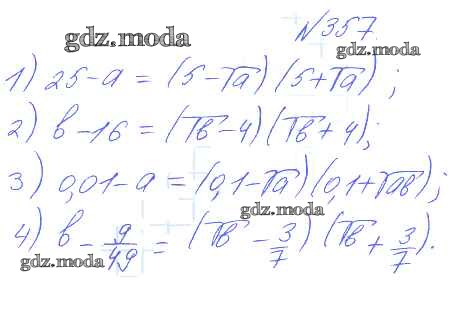 №357.
gdz.moda
gdz.moda
1) 25-a = (5-√a)(5+√a);
2) b-16 = (√b-4)(√b+4);
3) 0,01-a = (0,1-√a)(0,1+√ab);
gdz.moda
4) b - 9/49 = (√b - 3/7)(√b + 3/7).
gdz.moda